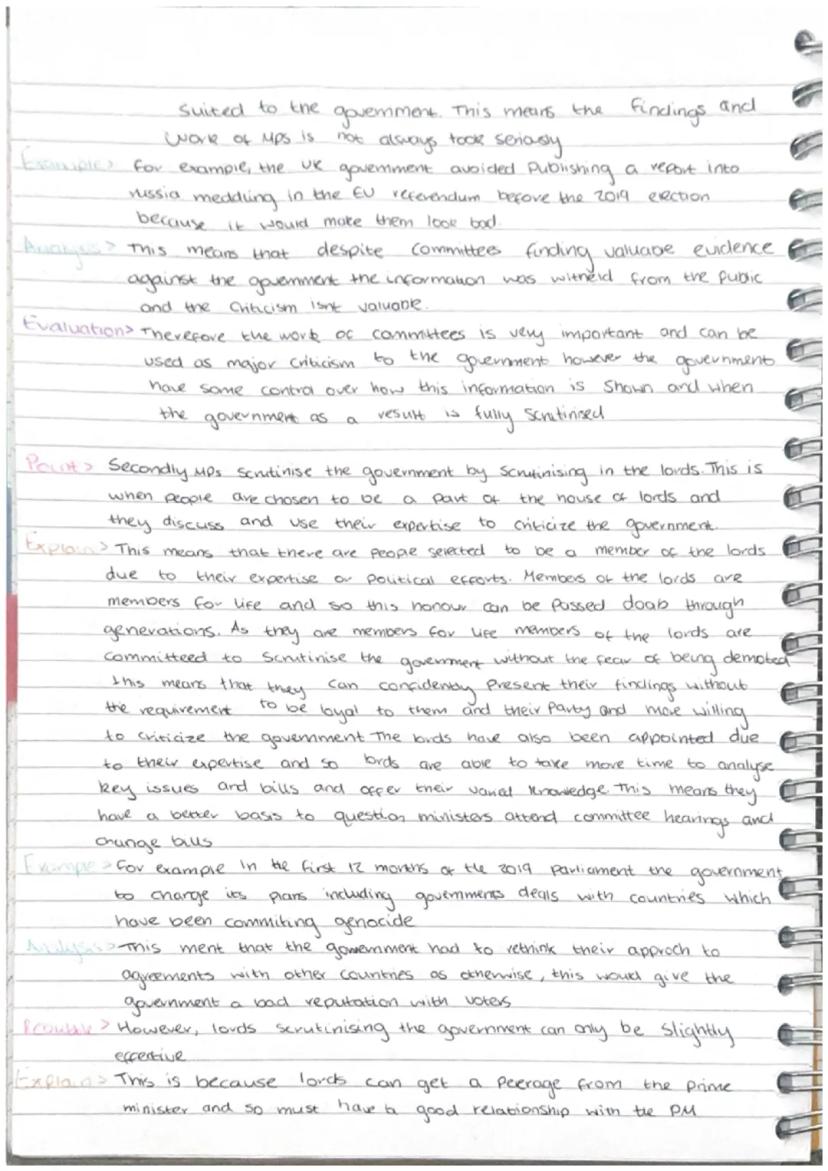 suited to the government. This means the findings and
work of MPs is not always took seriously
Example> for example, the UK government avoided publishing a report into
russia meddling in the EU referendum before the 2019 election
because it would make them look bad.
Analysis> This means that despite committees finding valuabe evidence
against the government the information was witheld from the public
and the criticism isnt valuable.
Evaluation> Therefore the work of committees is very important and can be
used as major criticism to the government however the government
have some control over how this information is shown and when
the government as a result is fully scrutinised
Point> Secondly MPs scrutinise the government by scrutinising in the lords. This is
when people are chosen to be a part of the house of lords and
they discuss and use their expertise to criticize the government.
Explain> This means that there are people selected to be a member of the lords
due to their expertise or political efforts. Members of the lords are
members for life and so this honour can be passed doab through
generations. As they are members for life members of the lords are
committeed to scrutinise the government without the fear of being demoted
this means that they can confidently present their findings without
the requirement to be loyal to them and their party and more willing
to criticize the government The lords have also been appointed due
to their expertise and so lords are able to take more time to analyse
key issues and bills and offer their varied knowledge. This means they
have a better basis to question ministers attend committee hearings and
change bills
Example> For example in the first 12 months of the 2019 parliament the government
to change its plans including governments deals with countries which
have been commiting genocide
Analysis> This ment that the government had to rethink their approch to
agreements with other countries as otherwise, this would give the
government a bad reputation with voters
> However, lords scrutinising the government can only be slightly
effective
Explain> This is because lords can get a peerage from the prime
minister and so must have a good relationship with the PM